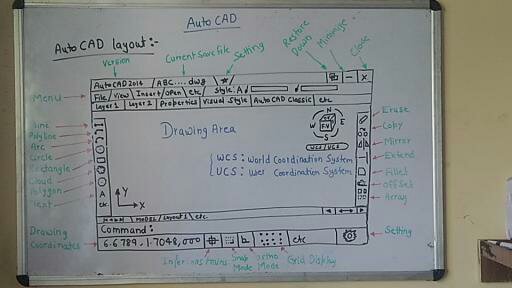 AutoCAD
AutoCAD layout:-
Version
Current Save file
Setting
Restore Down
Minimize
Close
AutoCAD 2014 / ABC....dwg
Menu
File / View / Insert / Open / etc Style: A
Layer 1 Layer 2 Properties Visual Style AutoCAD Classic etc
line
Polyline
Arc
Circle
Rectangle
Cloud
Polygon
Text
A
etc.
Drawing Area
N
W
E
S
WCS/UCS
WCS: World Coordination System
UCS: User Coordination System
Y
X
Erase
Copy
Mirror
Extend
Fillet
Offset
Array
Model / Layout 1 / etc
Command:
Drawing Coordinates
6.6789, 1.7048, 000
etc
Setting
Snap Mode
Ortho Mode
Grid Display